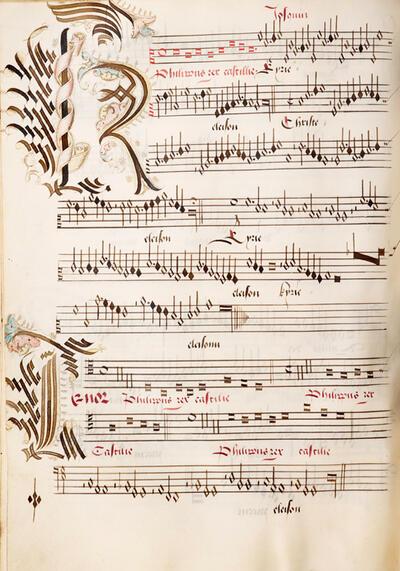 Josquin
Philippus rex castilie Kyrie
eleison Christe
eleison Kyrie
eleison kyrie
eleison
Tenor Philippus rex castilie Philippus rex
Castilie Philippus rex castilie
eleison